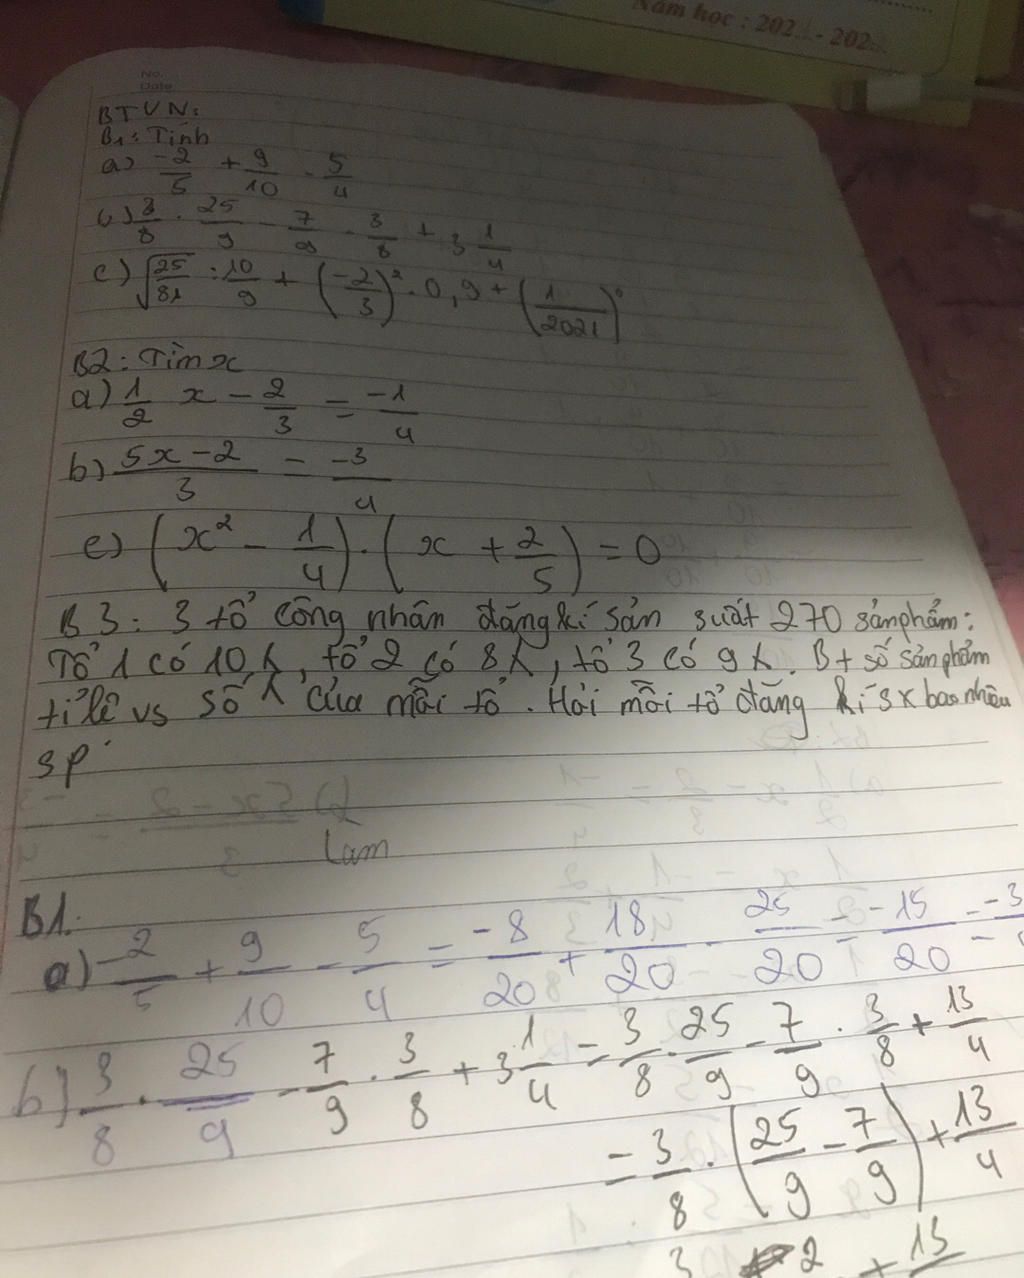 Năm học : 202 - 202
No.
Date
BTVN:
B1: Tính
a) -2/5 + 9/10 - 5/4
b) 3/8 . 25/9 - 7/9 . 3/8 + 3 1/4
c) √(25/81) : 10/9 + (-2/3)² . 0,9 + (1/2021)⁰
B2: Tìm x
a) 1/2 x - 2/3 = -1/4
b) (5x - 2)/3 = -3/4
c) (x² - 1/4) . (x + 2/5) = 0
B3: 3 tổ công nhân đăng kí sản suất 270 sảnphẩm:
Tổ 1 có 10 , tổ 2 có 8 , tổ 3 có 9 . B+ số sảnphẩm
tỉ lệ vs số của mỗi tổ. Hỏi mỗi tổ đăng kí sx bao nhiêu
sp
Làm
B1.
a) -2/5 + 9/10 - 5/4 = -8/20 + 18/20 - 25/20 = -15/20 = -3
b) 3/8 . 25/9 - 7/9 . 3/8 + 3 1/4 = 3/8 . 25/9 - 7/9 . 3/8 + 13/4
= 3/8 . (25/9 - 7/9) + 13/4
3 2 + 13